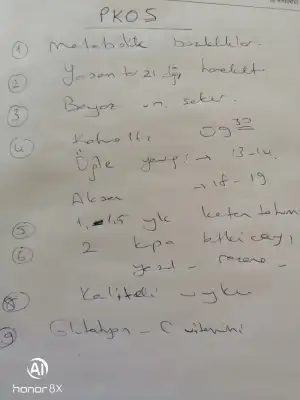 PKOS
1 metabolik bozukluklar.
2 Yaşam tarzı değ, hareket
3 Beyaz un, şeker.
4 Kahvaltı 09 30
Öğle yemeği → 13-14
Akşam → 18-19
5 1, - 1,5 yk keten tohum
6 2 kupa bitki çayı,
yeşil - rezene -
8 Kaliteli uyku
9 Glutatyon - C vitamini
AI
honor 8X